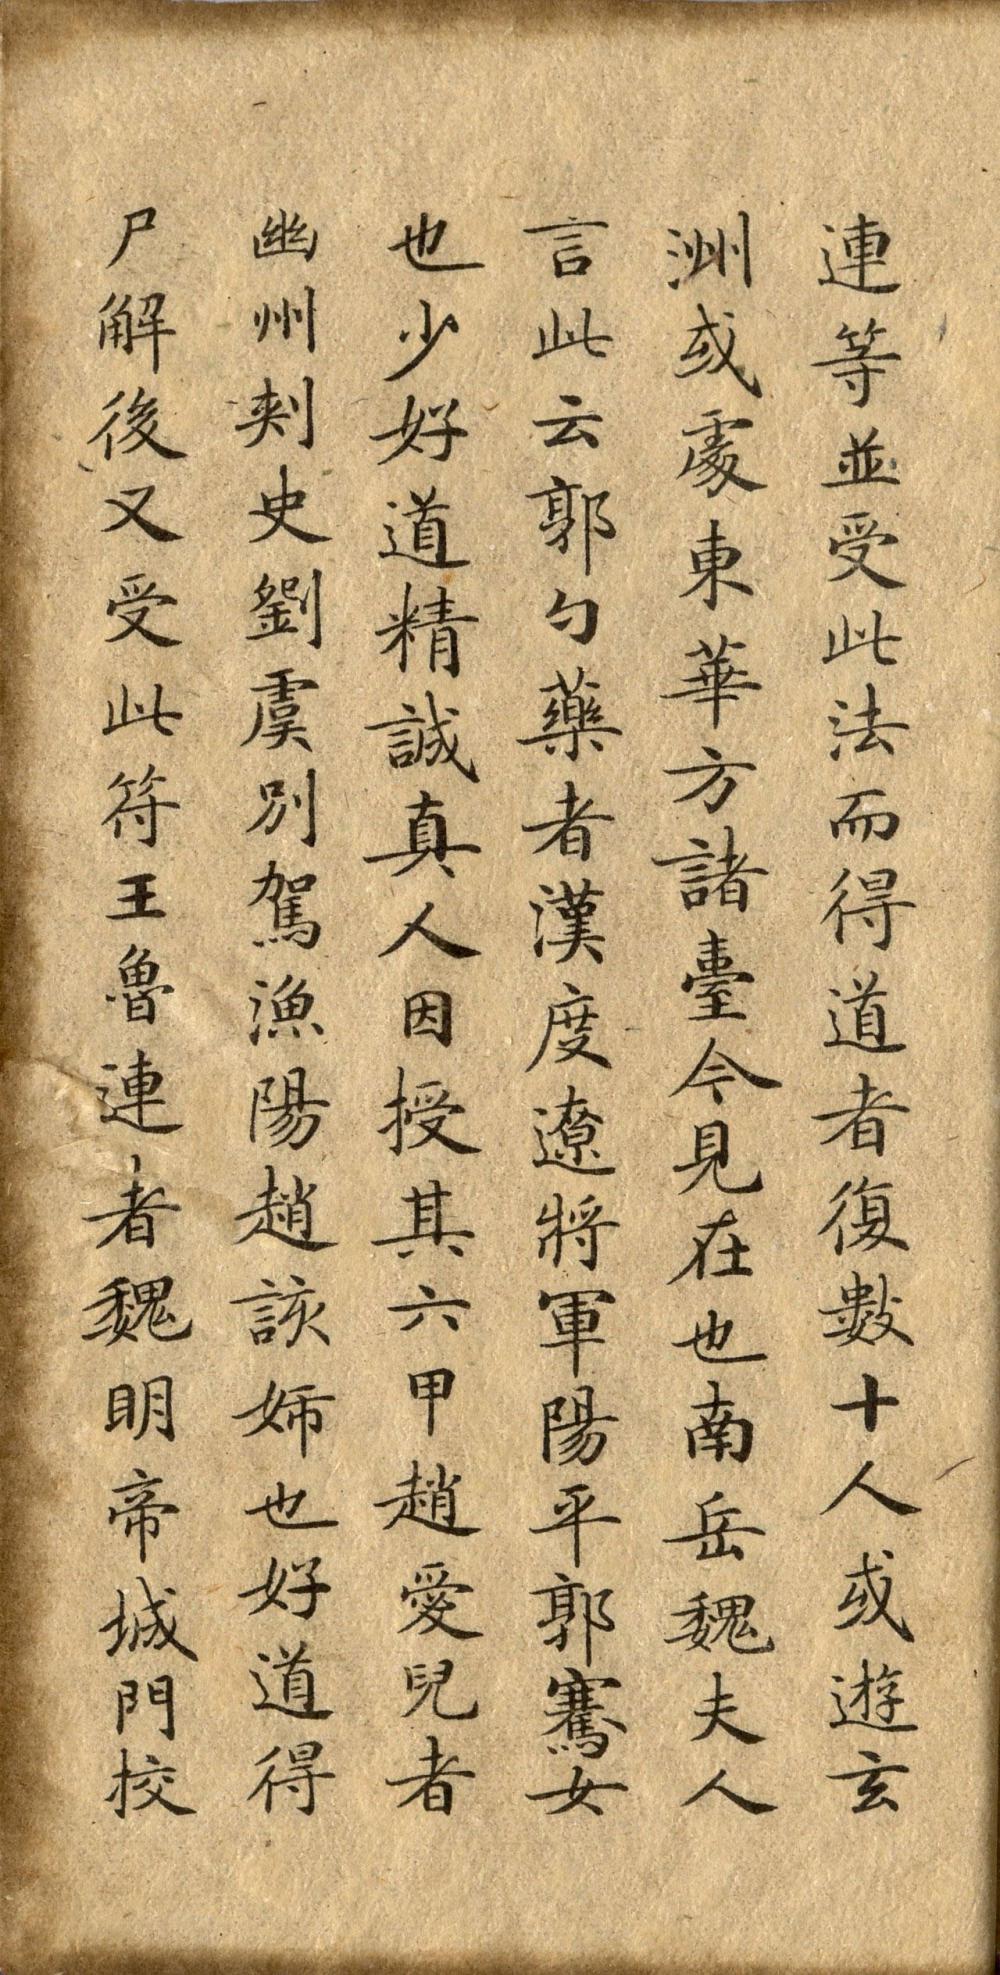 連等並受此法而得道者復數十人或遊玄
洲或處東華方諸臺今見在也南岳魏夫人
言此云郭勺藥者漢度遼將軍陽平郭騫女
也少好道精誠真人因授其六甲趙愛兒者
幽州刾史劉虞別駕漁陽趙該姉也好道得
尸解後又受此符王魯連者魏明帝城門校